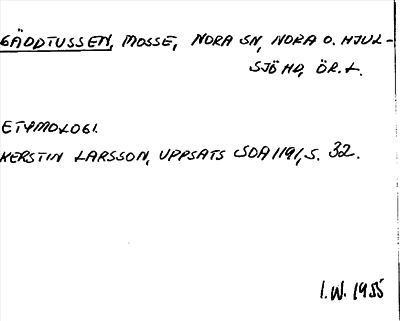 GÄDDTUSSEN, MOSSE, NORA SN, NORA O. HJUL-
SJÖ HD, ÖR. L.
ETYMOLOGI.
KERSTIN LARSSON, UPPSATS SOA 1191, S. 32.
I.W. 1955